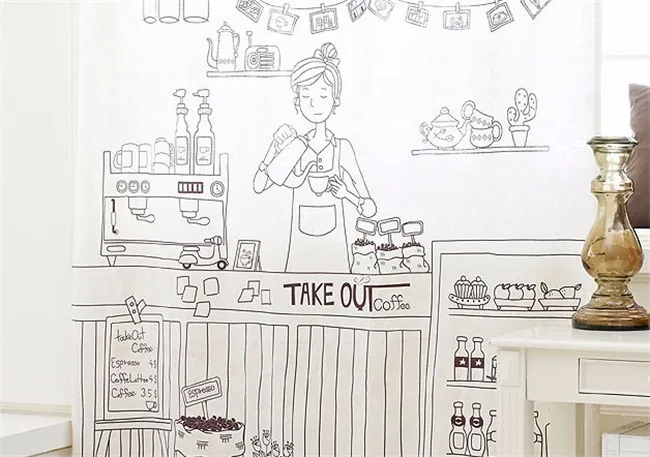 TAKE OUT Coffee
takeOut
Coffee
Espresso 4$
CoffeLatte 4$
Coffee 3.5$
Espresso